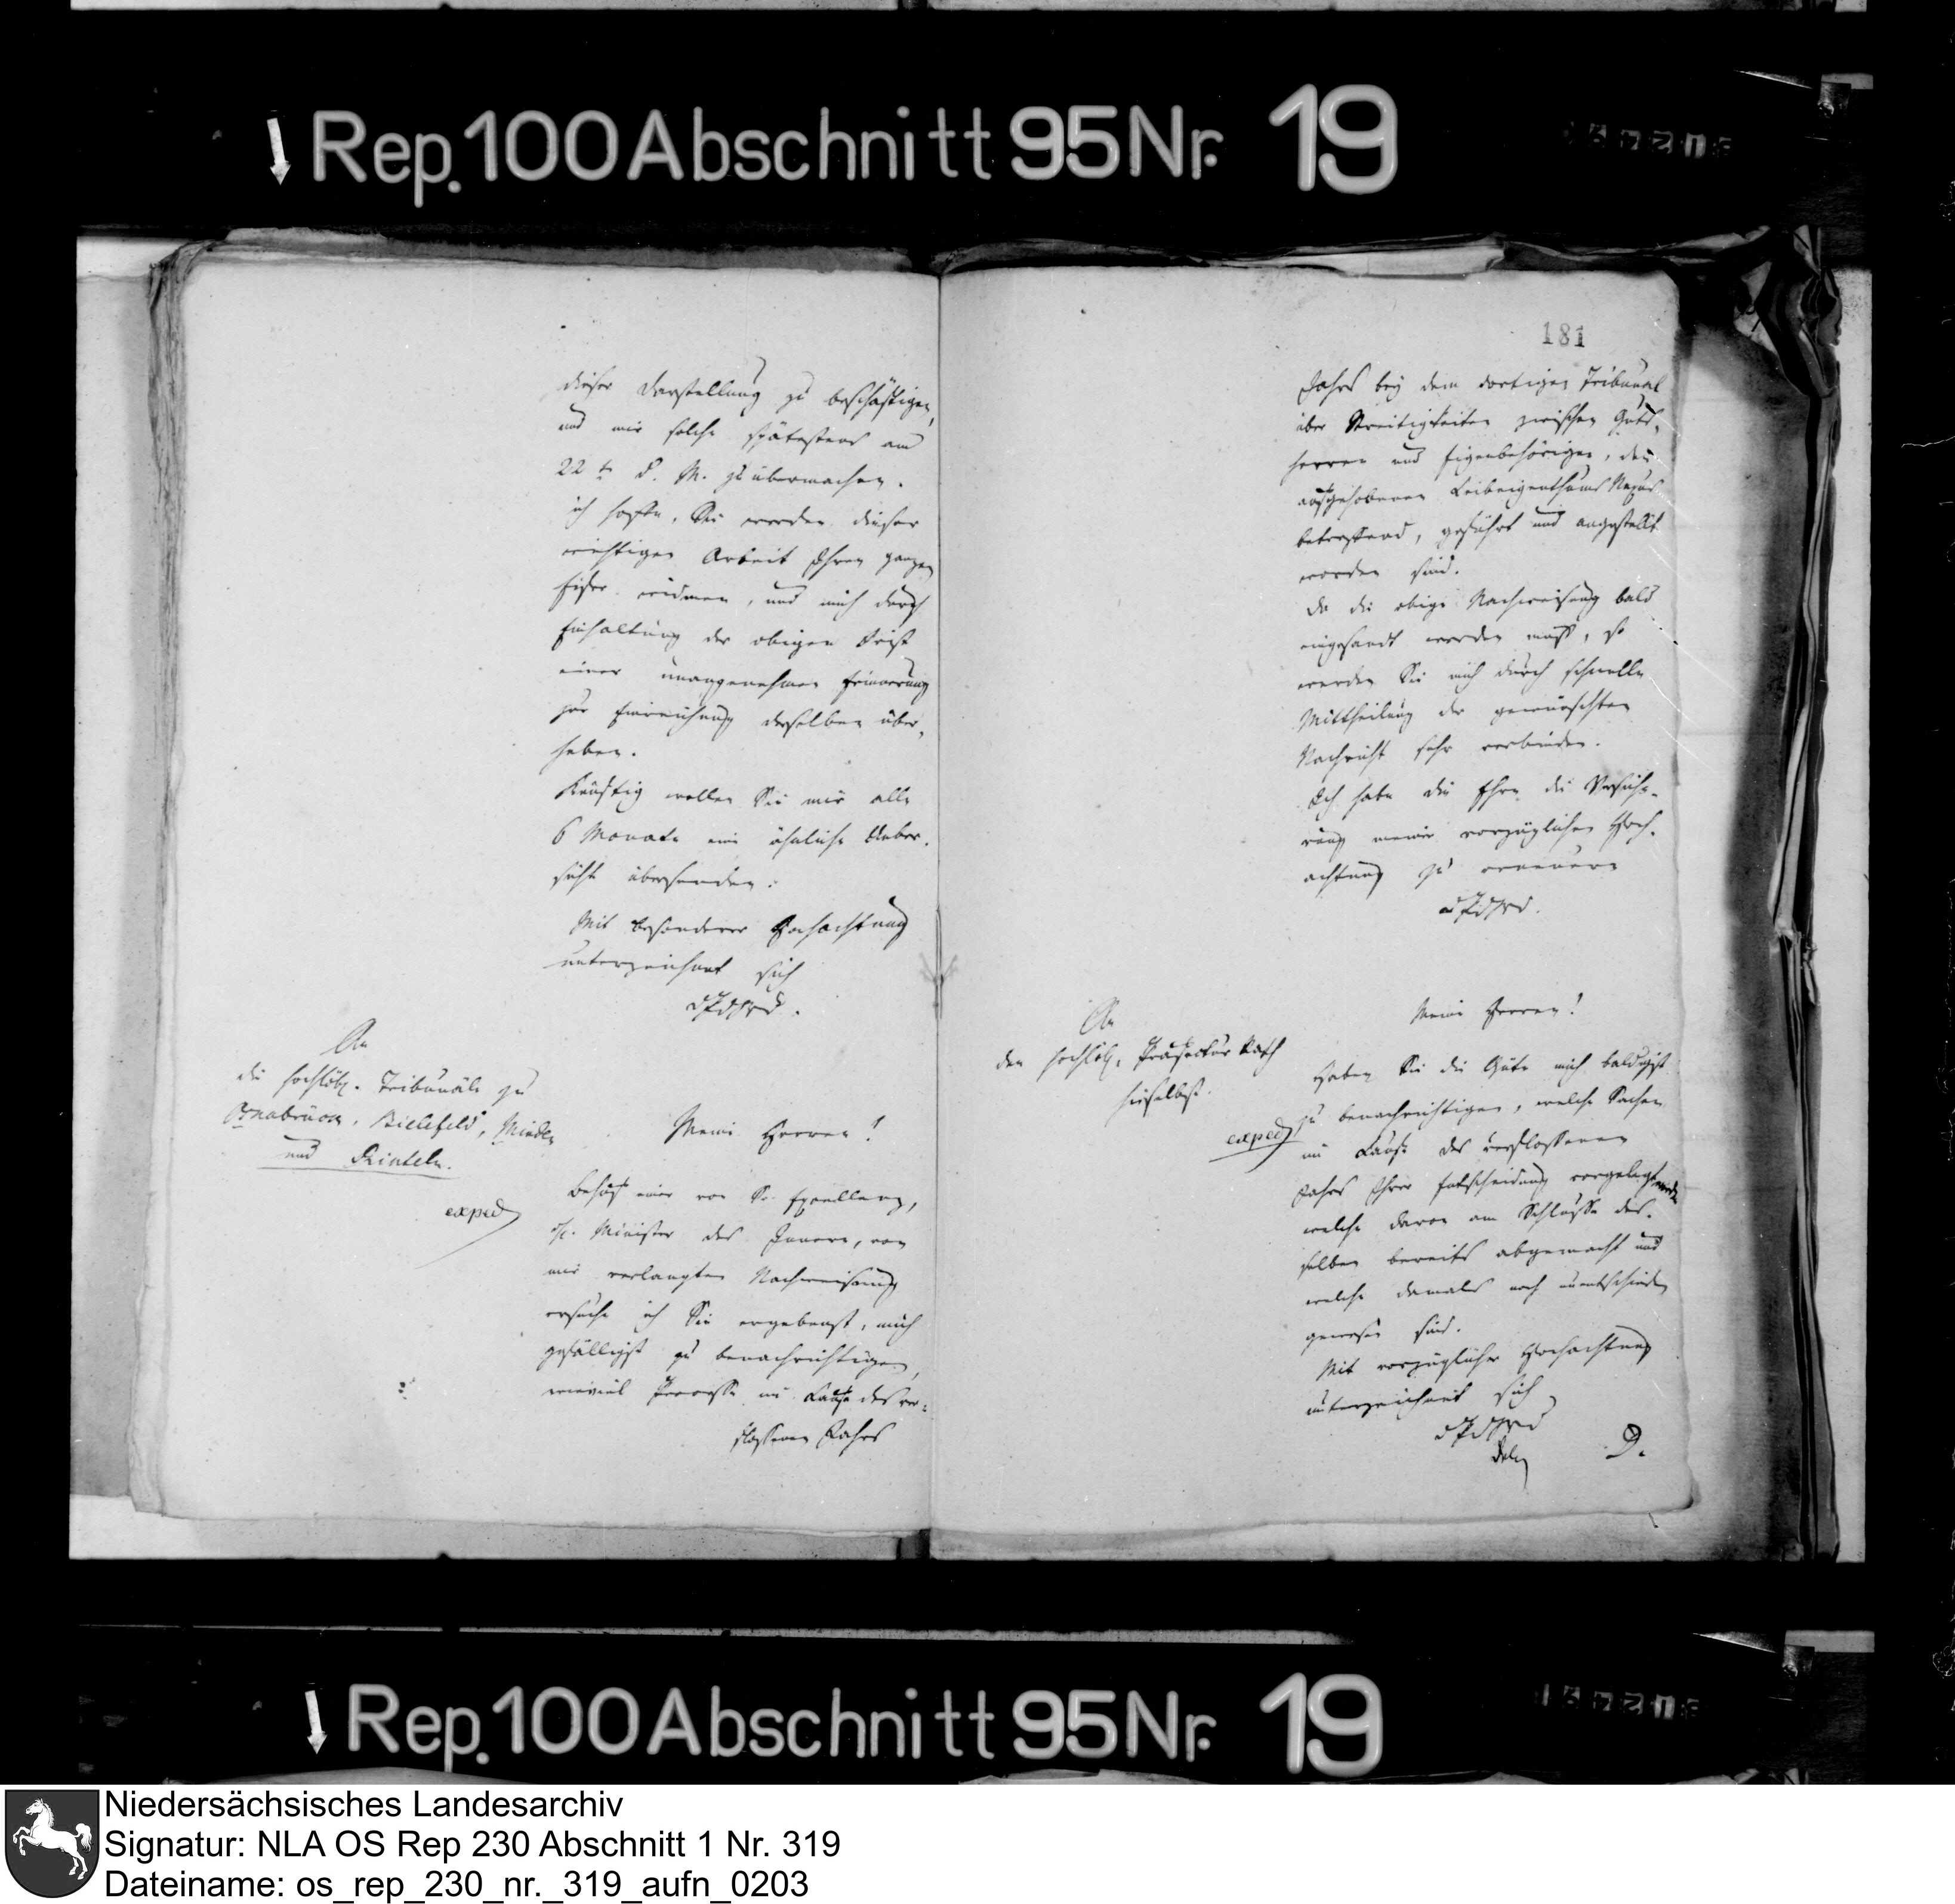 ↓ Rep. 100 Abschnitt 95 Nr. 19
dieser Darstellung zu beschäftigen,
und mir solche spätestens am
22t. d. M. zu übermachen.
ich hoffe, Sie werden dieser
wichtigen Arbeit Ihren ganzen
Eifer widmen, und mich durch
Einhaltung der obigen Frist
einer unangenehmen Erinnerung
zur Einreichung derselben über-
heben.
Künftig wollen Sie mir alle
6 Monate eine ähnliche Ueber-
sicht übersenden.
Mit besonderer Hochachtung
unterzeichnet sich
An
die hochlöbl. Tribunäle zu
Osnabrück, Bielefeld, Minden
und Rinteln.
exped
Meine Herren!
Behuf einer von Sr. Excellenz,
H. Minister des Innern, von
mir verlangten Nachweisung
ersuche ich Sie ergebenst, mich
gefälligst zu benachrichtigen,
wieviel Processe im Laufe des ver-
flossenen Jahrs
181
Jahrs bey dem dortigen Tribunal
über Streitigkeiten zwischen Guts-
herren und Eigenbehörigen, den
aufgehobenen Leibeigenthums Nexus
betreffend, geführt und angestellt
worden sind.
Da die obige Nachweisung bald
eingesandt werden muß, so
werden Sie mich durch schnelle
Mittheilung der gewünschten
Nachricht sehr verbinden.
Ich habe die Ehre die Versiche-
rung meiner vorzüglichen Hoch-
achtung zu erneuern
An
den hochlöbl. Präfectur Rath
hieselbst.
exped
Meine Herren!
Haben Sie die Güte mich baldigst
zu benachrichtigen, welche Sachen
im Laufe des verflossenen
Jahrs Ihrer Entscheidung vorgelegt worden
welche davon am Schlusse des-
selben bereits abgemacht und
welche damals noch unentschieden
gewesen sind.
Mit vorzüglicher Hochachtung
unterzeichnet sich
↓ Rep. 100 Abschnitt 95 Nr. 19
Niedersächsisches Landesarchiv
Signatur: NLA OS Rep 230 Abschnitt 1 Nr. 319
Dateiname: os_rep_230_nr._319_aufn_0203